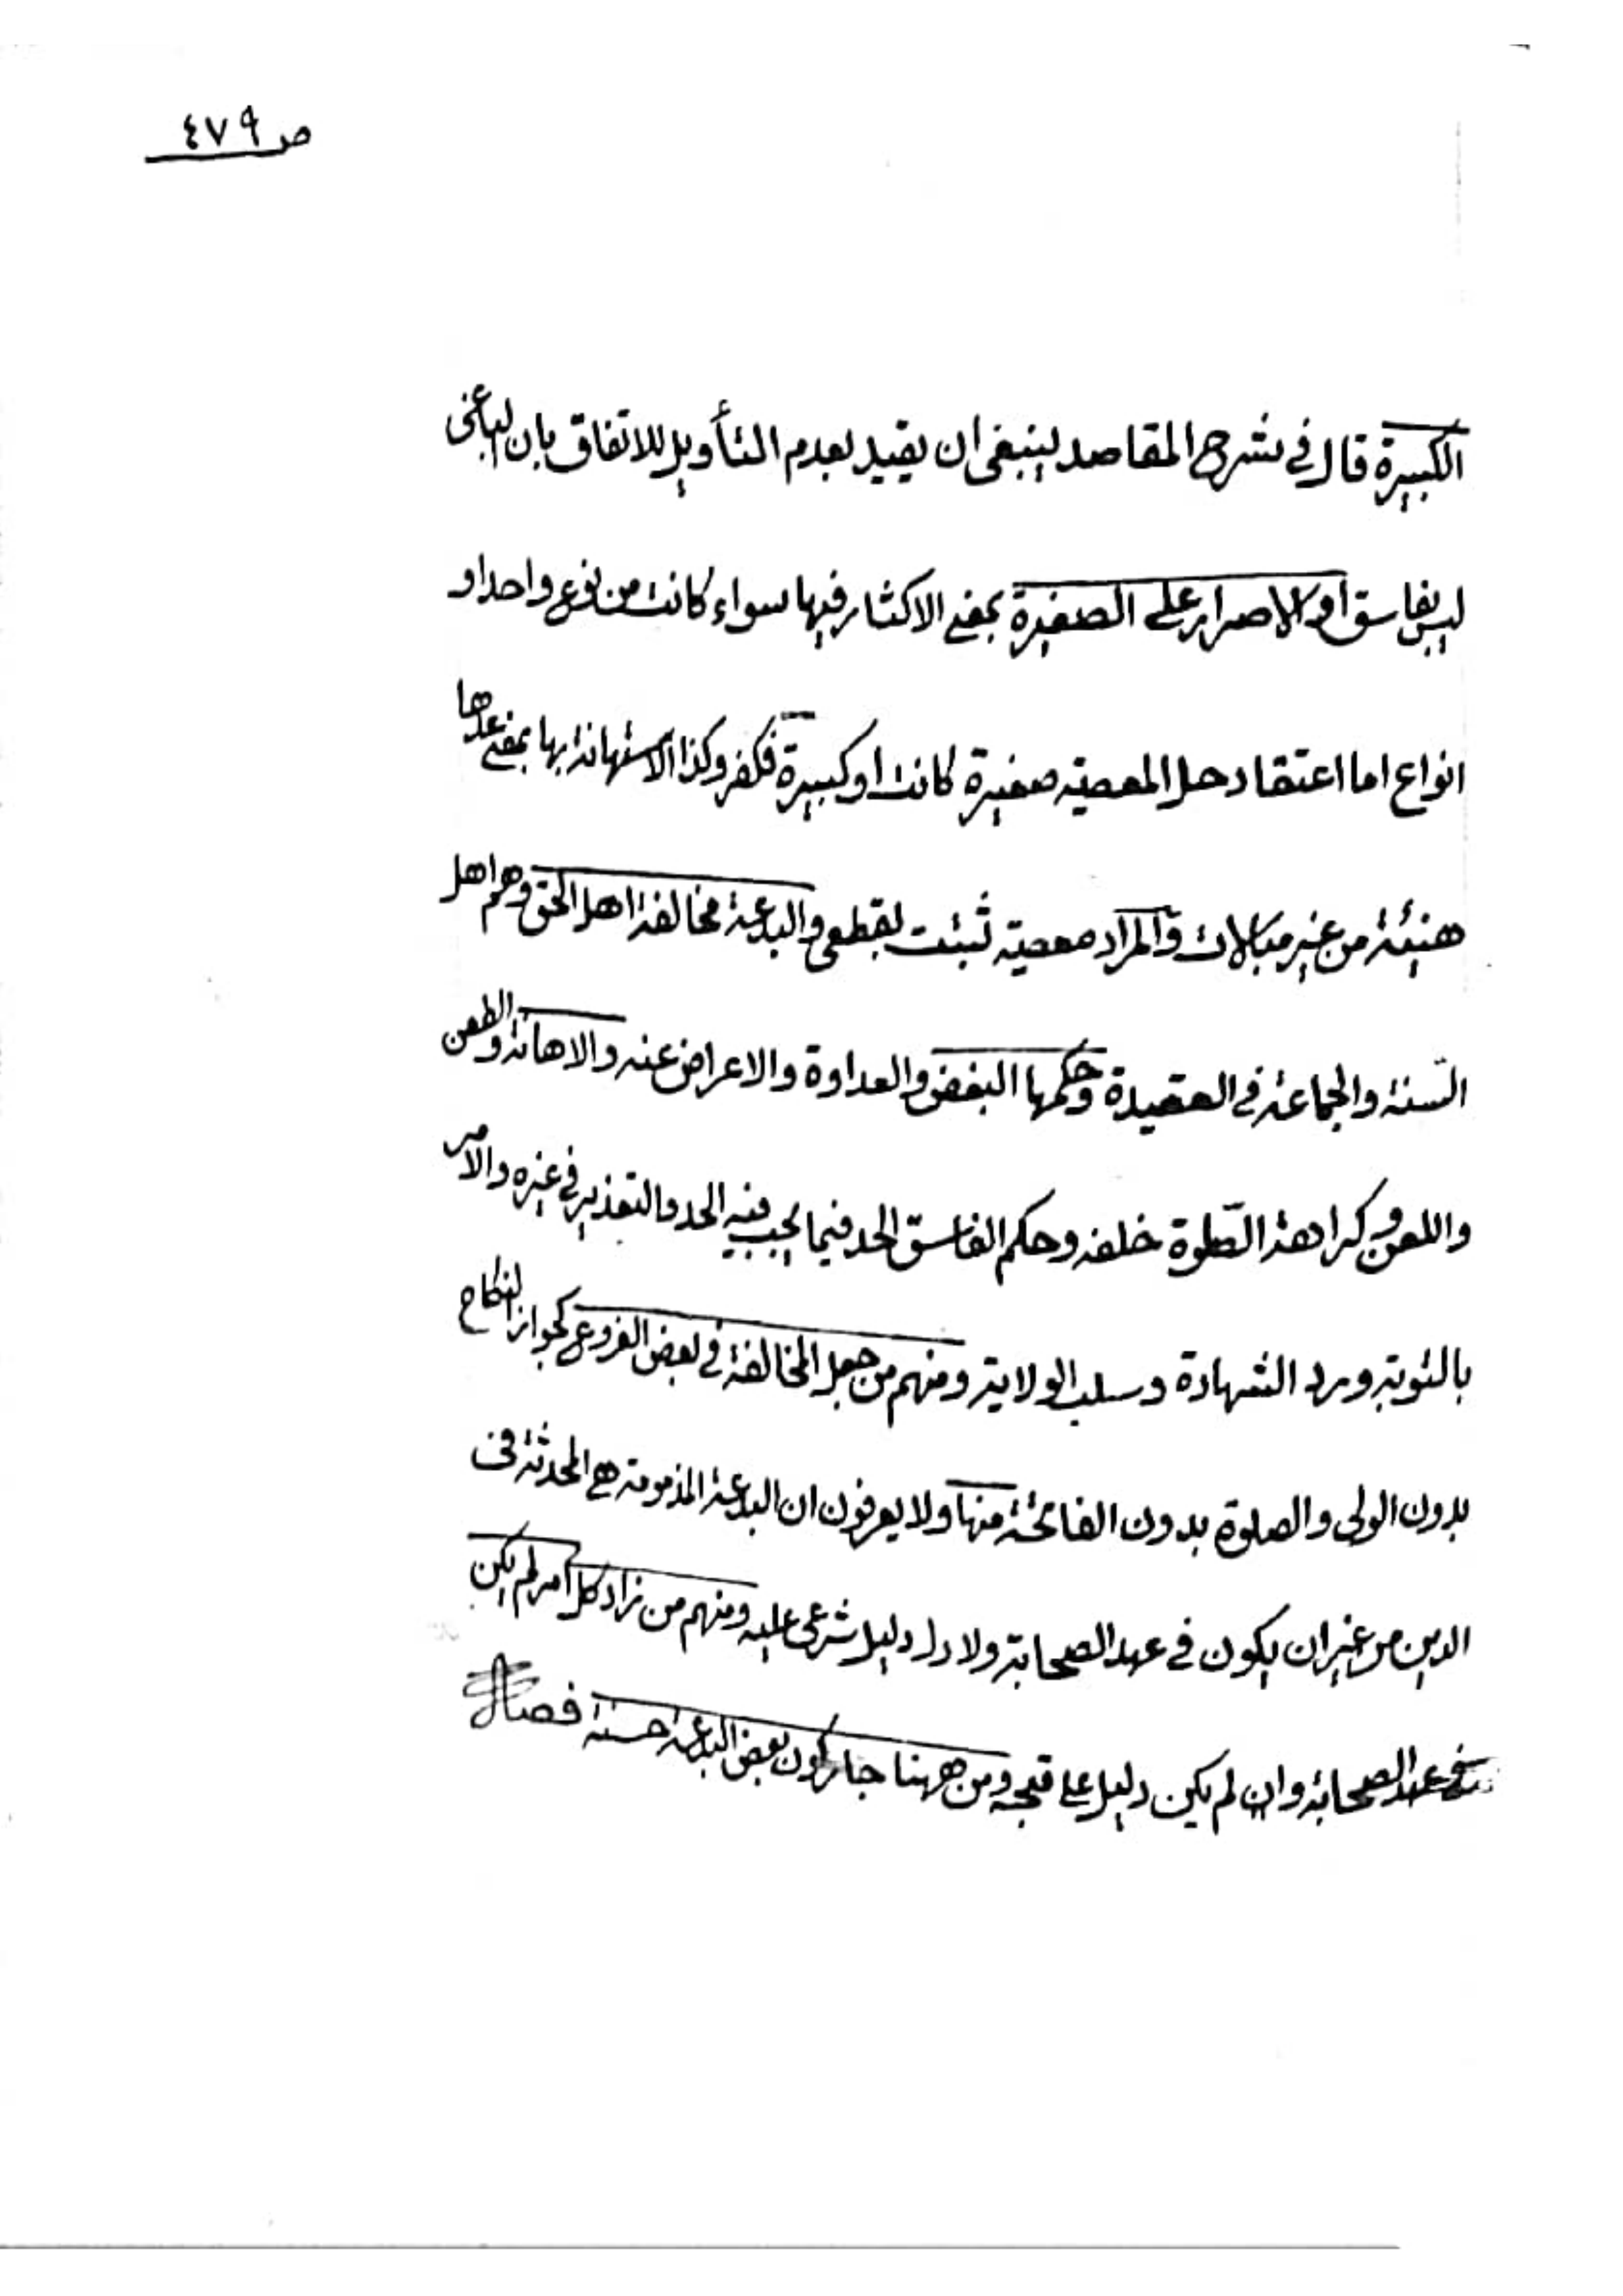 ص ٤٧٩
الكبيرة قال في شرح المقاصد ينبغى ان يقيد بعدم التأويل للاتفاق بان الباغى
ليس بفاسق او الاصرار على الصغيرة بمعنى الاكثار فيها سواء كانت من نوع واحد او
انواع اما اعتقاد حل المعصية صغيرة كانت او كبيرة فكفر وكذا الاستهانة بها بمعنى عدها
هنيئة من غير مبالات والمراد معصية ثبتت بقطعى والبدعة مخالفة اهل الحق وهم اهل
السّنة والجماعة في العقيدة وحكمها البغض والعداوة والاعراض عنه والاهانة والطعن
واللعن وكراهة الصّلوة خلفه وحكم الفاسق الحد فيما يجب فيه الحد والتعذير في غيره والامر
بالتوبة ورد الشهادة وسلب الولاية ومنهم من جعل المخالفة في بعض الفروع كجواز النكاح
بدون الولى والصلوة بدون الفاتحة منها ولا يعرفون ان البدعة المذمومة هي المحدثة فى
الدين من غير ان يكون في عهد الصحابة ولا دل دليل شرعى عليه ومنهم من زاد كل امر لم يكن
في عهد الصحابة وان لم يكن دليل على قبحه ومن ههنا جاز كون بعض البدعة حسنة فصل